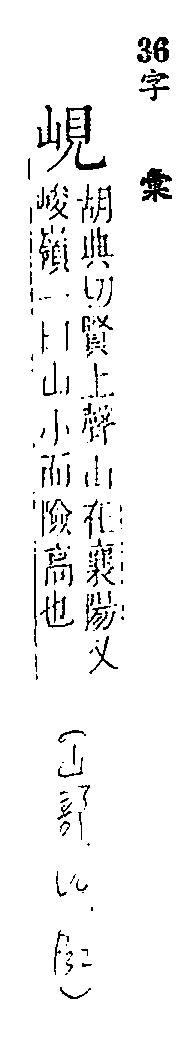 36字彙
峴
胡典切賢上聲山在襄陽又
峻嶺一曰山小而險高也
(山部.